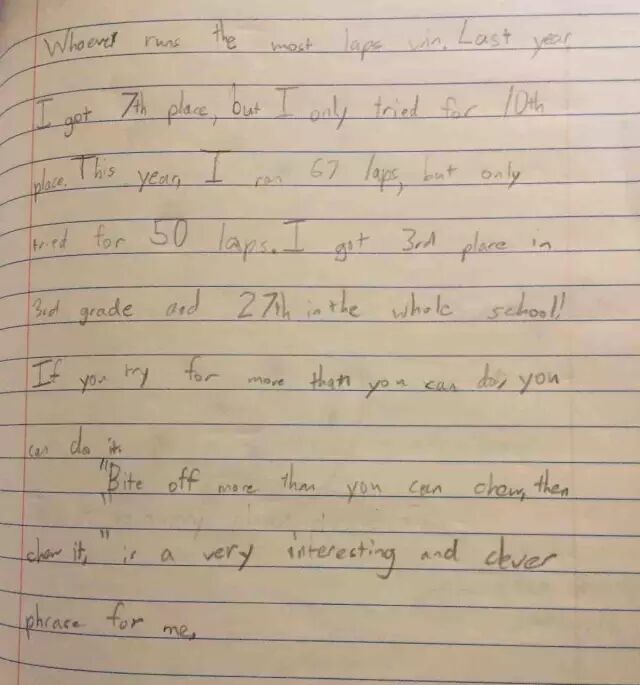 Whoever runs the most laps win. Last year,
I got 7th place, but I only tried for 10th
place. This year, I ran 67 laps, but only
tried for 50 laps. I got 3rd place in
3rd grade and 27th in the whole school!
If you try for more than you can do, you
can do it.
"Bite off more than you can chew, then
chew it," is a very interesting and clever
phrase for me.